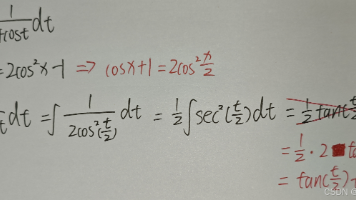 1/(1+cost) dt
= 2cos²x-1 ⇒ cosx+1 = 2cos² x/2
dt = ∫ 1/(2cos²(t/2)) dt = 1/2 ∫ sec²(t/2) dt = 1/2 tan(t/2
= 1/2 · 2 t
= tan(t/2)+